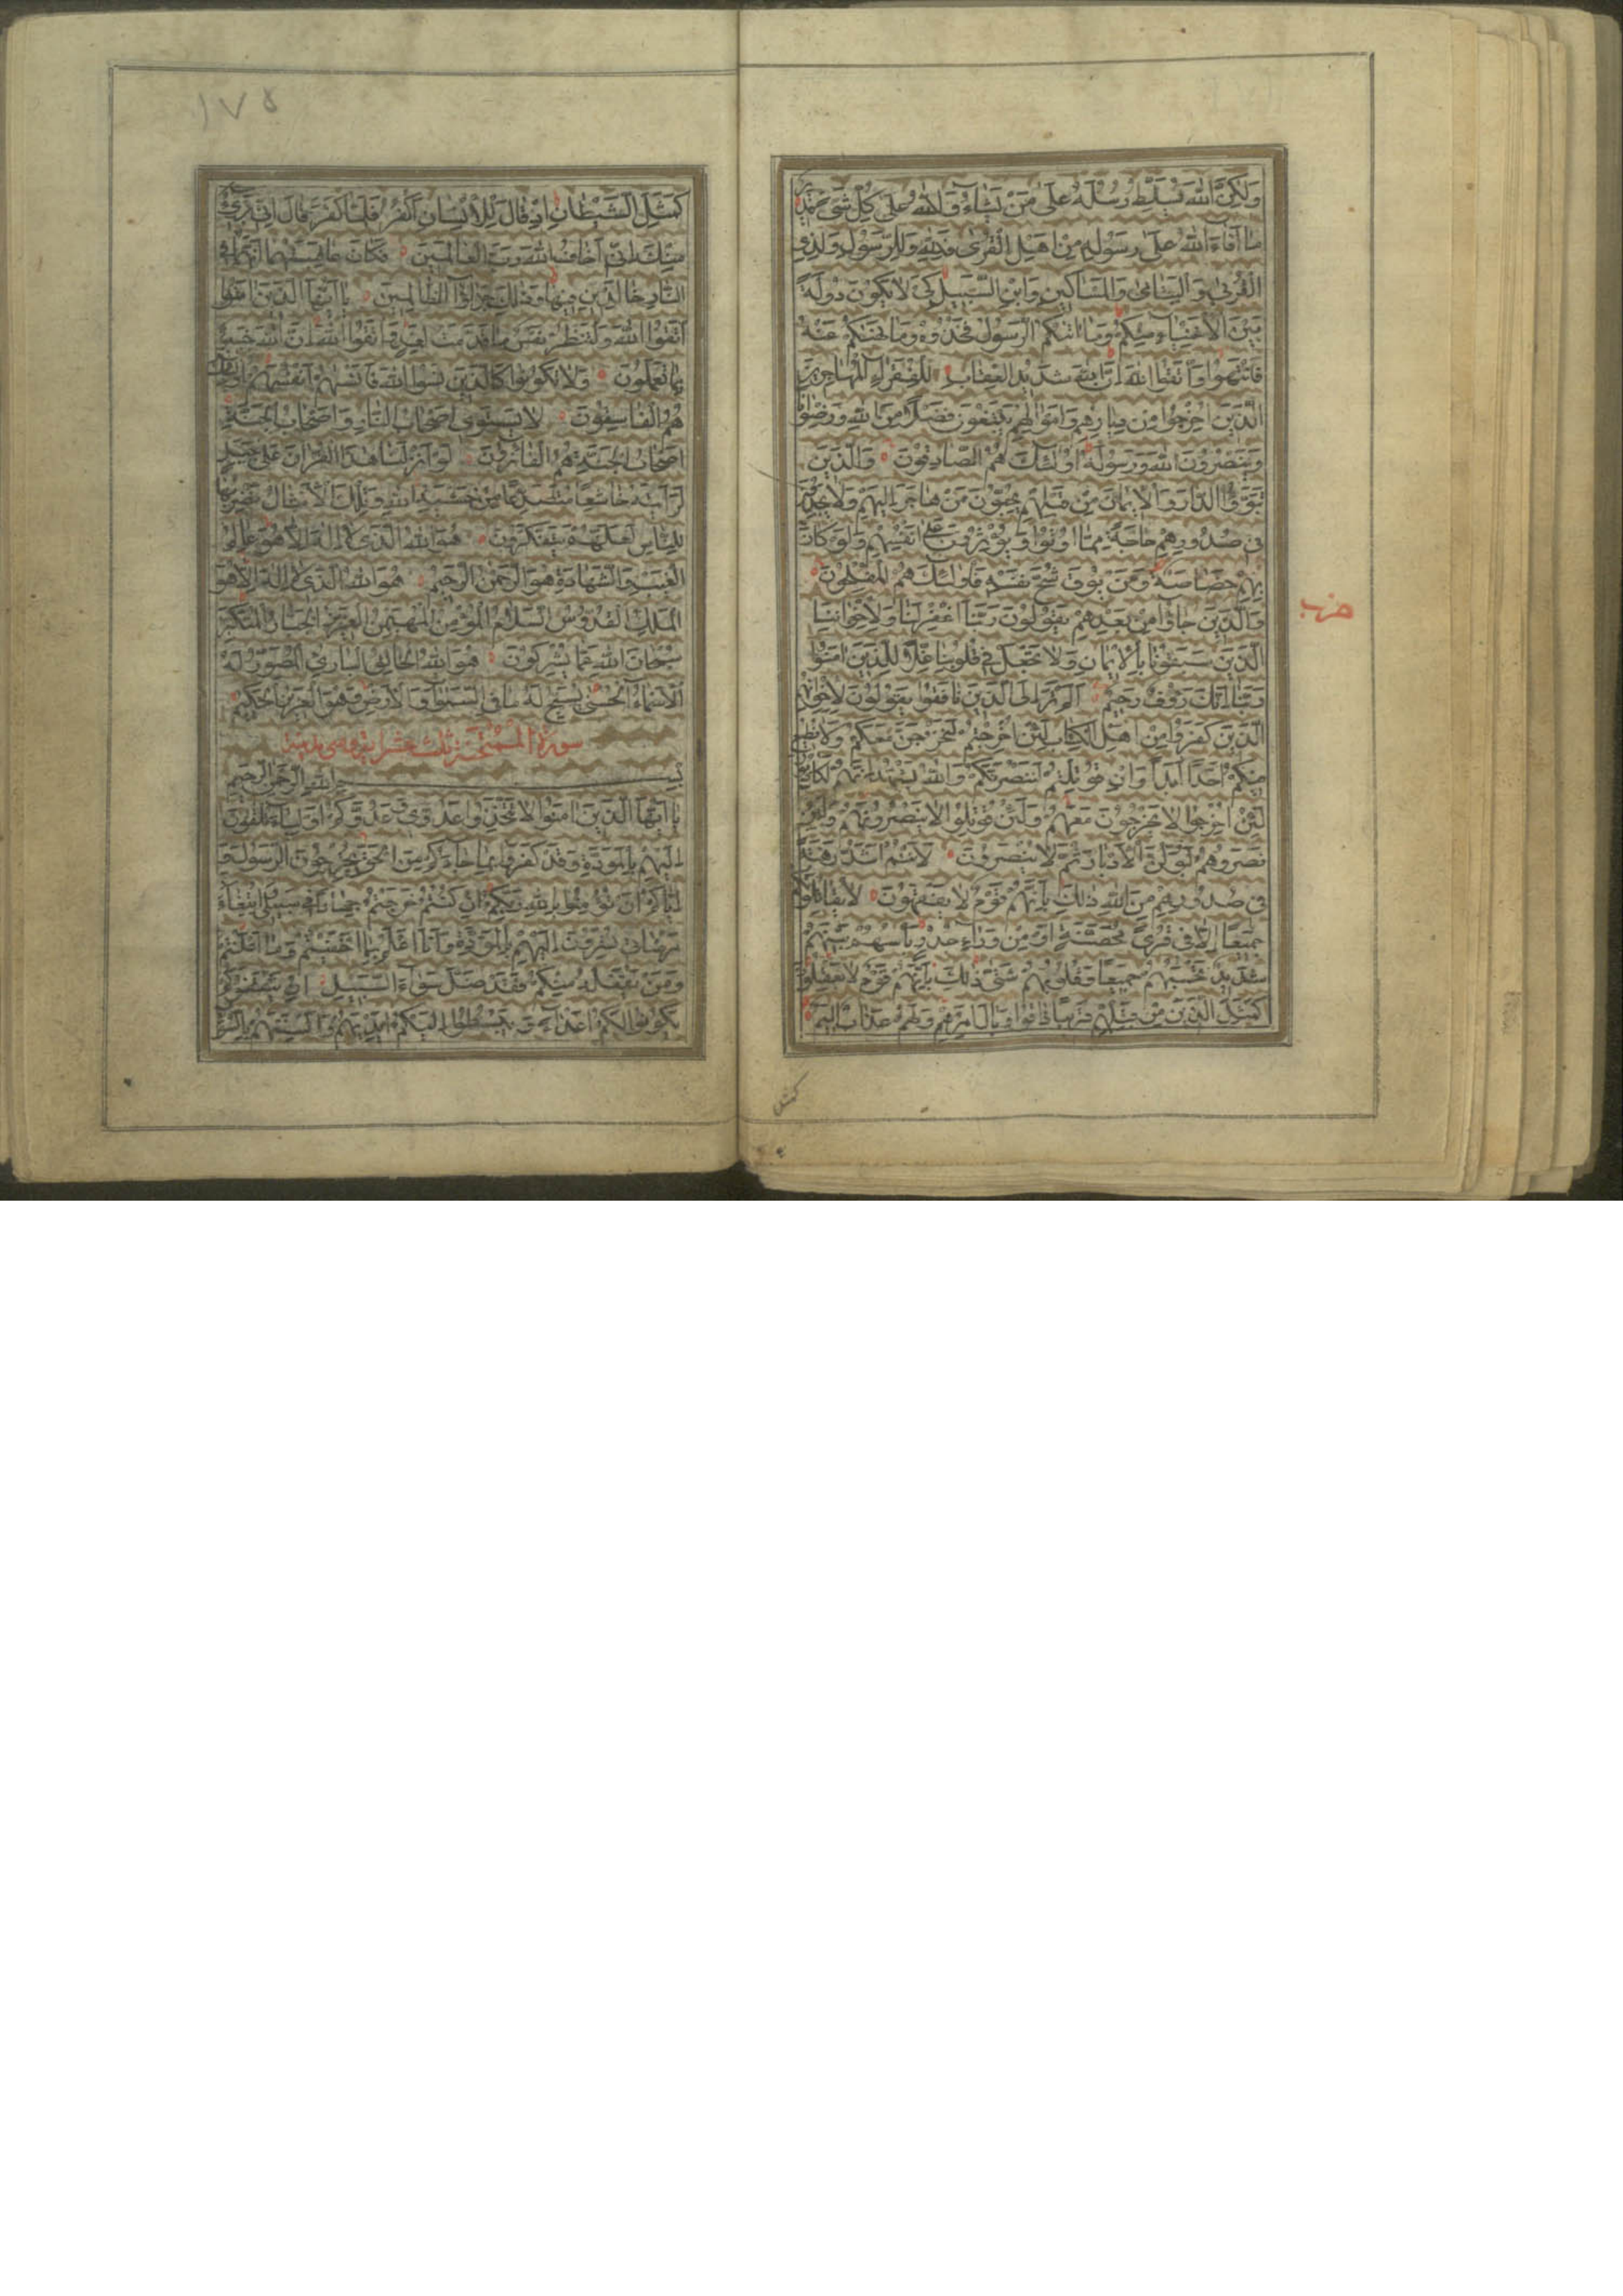 وَلَكِنَّ اللّٰهَ يُسَلِّطُ رُسُلَهُ عَلَىٰ مَنْ يَشَاءُ وَاللّٰهُ عَلَىٰ كُلِّ شَىْءٍ قَدِيرٌ
مَا أَفَاءَ اللّٰهُ عَلَىٰ رَسُولِهِ مِنْ أَهْلِ الْقُرَىٰ فَلِلّٰهِ وَلِلرَّسُولِ وَلِذِى
الْقُرْبَىٰ وَالْيَتَامَىٰ وَالْمَسَاكِينِ وَابْنِ السَّبِيلِ كَىْ لَا يَكُونَ دُولَةً
بَيْنَ الْأَغْنِيَاءِ مِنْكُمْ وَمَا اٰتٰىكُمُ الرَّسُولُ فَخُذُوهُ وَمَا نَهٰىكُمْ عَنْهُ
فَانْتَهُوا وَاتَّقُوا اللّٰهَ إِنَّ اللّٰهَ شَدِيدُ الْعِقَابِ لِلْفُقَرَاءِ الْمُهَاجِرِينَ
الَّذِينَ أُخْرِجُوا مِنْ دِيَارِهِمْ وَأَمْوَالِهِمْ يَبْتَغُونَ فَضْلًا مِنَ اللّٰهِ وَرِضْوَانًا
وَيَنْصُرُونَ اللّٰهَ وَرَسُولَهُ أُولٰئِكَ هُمُ الصَّادِقُونَ وَالَّذِينَ
تَبَوَّؤُا الدَّارَ وَالْإِيمَانَ مِنْ قَبْلِهِمْ يُحِبُّونَ مَنْ هَاجَرَ إِلَيْهِمْ وَلَا يَجِدُونَ
فِى صُدُورِهِمْ حَاجَةً مِمَّا أُوتُوا وَيُؤْثِرُونَ عَلَىٰ أَنْفُسِهِمْ وَلَوْ كَانَ
بِهِمْ خَصَاصَةٌ وَمَنْ يُوقَ شُحَّ نَفْسِهِ فَأُولٰئِكَ هُمُ الْمُفْلِحُونَ
حزب
وَالَّذِينَ جَاؤُا مِنْ بَعْدِهِمْ يَقُولُونَ رَبَّنَا اغْفِرْ لَنَا وَلِإِخْوَانِنَا
الَّذِينَ سَبَقُونَا بِالْإِيمَانِ وَلَا تَجْعَلْ فِى قُلُوبِنَا غِلًّا لِلَّذِينَ اٰمَنُوا
رَبَّنَا إِنَّكَ رَؤُفٌ رَحِيمٌ أَلَمْ تَرَ إِلَى الَّذِينَ نَافَقُوا يَقُولُونَ لِإِخْوَانِهِمُ
الَّذِينَ كَفَرُوا مِنْ أَهْلِ الْكِتَابِ لَئِنْ أُخْرِجْتُمْ لَنَخْرُجَنَّ مَعَكُمْ وَلَا نُطِيعُ
مِنْكُمْ أَحَدًا أَبَدًا وَإِنْ قُوتِلْتُمْ لَنَنْصُرَنَّكُمْ وَاللّٰهُ يَشْهَدُ إِنَّهُمْ لَكَاذِبُونَ
لَئِنْ أُخْرِجُوا لَا يَخْرُجُونَ مَعَهُمْ وَلَئِنْ قُوتِلُوا لَا يَنْصُرُونَهُمْ وَلَئِنْ
نَصَرُوهُمْ لَيُوَلُّنَّ الْأَدْبَارَ ثُمَّ لَا يُنْصَرُونَ لَأَنْتُمْ أَشَدُّ رَهْبَةً
فِى صُدُورِهِمْ مِنَ اللّٰهِ ذٰلِكَ بِأَنَّهُمْ قَوْمٌ لَا يَفْقَهُونَ لَا يُقَاتِلُونَكُمْ
جَمِيعًا إِلَّا فِى قُرًى مُحَصَّنَةٍ أَوْ مِنْ وَرَاءِ جُدُرٍ بَأْسُهُمْ بَيْنَهُمْ
شَدِيدٌ تَحْسَبُهُمْ جَمِيعًا وَقُلُوبُهُمْ شَتَّىٰ ذٰلِكَ بِأَنَّهُمْ قَوْمٌ لَا يَعْقِلُونَ
كَمَثَلِ الَّذِينَ مِنْ قَبْلِهِمْ قَرِيبًا ذَاقُوا وَبَالَ أَمْرِهِمْ وَلَهُمْ عَذَابٌ أَلِيمٌ
كمثل
١٧٥
كَمَثَلِ الشَّيْطَانِ إِذْ قَالَ لِلْإِنْسَانِ اكْفُرْ فَلَمَّا كَفَرَ قَالَ إِنِّى بَرِىءٌ
مِنْكَ إِنِّى أَخَافُ اللّٰهَ رَبَّ الْعَالَمِينَ فَكَانَ عَاقِبَتَهُمَا أَنَّهُمَا فِى
النَّارِ خَالِدَيْنِ فِيهَا وَذٰلِكَ جَزَاؤُا الظَّالِمِينَ يَا أَيُّهَا الَّذِينَ اٰمَنُوا
اتَّقُوا اللّٰهَ وَلْتَنْظُرْ نَفْسٌ مَا قَدَّمَتْ لِغَدٍ وَاتَّقُوا اللّٰهَ إِنَّ اللّٰهَ خَبِيرٌ
بِمَا تَعْمَلُونَ وَلَا تَكُونُوا كَالَّذِينَ نَسُوا اللّٰهَ فَأَنْسٰهُمْ أَنْفُسَهُمْ أُولٰئِكَ
هُمُ الْفَاسِقُونَ لَا يَسْتَوِى أَصْحَابُ النَّارِ وَأَصْحَابُ الْجَنَّةِ
أَصْحَابُ الْجَنَّةِ هُمُ الْفَائِزُونَ لَوْ أَنْزَلْنَا هٰذَا الْقُرْاٰنَ عَلَىٰ جَبَلٍ
لَرَأَيْتَهُ خَاشِعًا مُتَصَدِّعًا مِنْ خَشْيَةِ اللّٰهِ وَتِلْكَ الْأَمْثَالُ نَضْرِبُهَا
لِلنَّاسِ لَعَلَّهُمْ يَتَفَكَّرُونَ هُوَ اللّٰهُ الَّذِى لَا إِلٰهَ إِلَّا هُوَ عَالِمُ
الْغَيْبِ وَالشَّهَادَةِ هُوَ الرَّحْمٰنُ الرَّحِيمُ هُوَ اللّٰهُ الَّذِى لَا إِلٰهَ إِلَّا هُوَ
الْمَلِكُ الْقُدُّوسُ السَّلَامُ الْمُؤْمِنُ الْمُهَيْمِنُ الْعَزِيزُ الْجَبَّارُ الْمُتَكَبِّرُ
سُبْحَانَ اللّٰهِ عَمَّا يُشْرِكُونَ هُوَ اللّٰهُ الْخَالِقُ الْبَارِئُ الْمُصَوِّرُ لَهُ
الْأَسْمَاءُ الْحُسْنَىٰ يُسَبِّحُ لَهُ مَا فِى السَّمٰوَاتِ وَالْأَرْضِ وَهُوَ الْعَزِيزُ الْحَكِيمُ
سورة الممتحنة ثلث عشر اية وهى مدنية
بِسْمِ اللّٰهِ الرَّحْمٰنِ الرَّحِيمِ
يَا أَيُّهَا الَّذِينَ اٰمَنُوا لَا تَتَّخِذُوا عَدُوِّى وَعَدُوَّكُمْ أَوْلِيَاءَ تُلْقُونَ
إِلَيْهِمْ بِالْمَوَدَّةِ وَقَدْ كَفَرُوا بِمَا جَاءَكُمْ مِنَ الْحَقِّ يُخْرِجُونَ الرَّسُولَ وَ
إِيَّاكُمْ أَنْ تُؤْمِنُوا بِاللّٰهِ رَبِّكُمْ إِنْ كُنْتُمْ خَرَجْتُمْ جِهَادًا فِى سَبِيلِى وَابْتِغَاءَ
مَرْضَاتِى تُسِرُّونَ إِلَيْهِمْ بِالْمَوَدَّةِ وَأَنَا أَعْلَمُ بِمَا أَخْفَيْتُمْ وَمَا أَعْلَنْتُمْ
وَمَنْ يَفْعَلْهُ مِنْكُمْ فَقَدْ ضَلَّ سَوَاءَ السَّبِيلِ إِنْ يَثْقَفُوكُمْ
يَكُونُوا لَكُمْ أَعْدَاءً وَيَبْسُطُوا إِلَيْكُمْ أَيْدِيَهُمْ وَأَلْسِنَتَهُمْ بِالسُّوءِ